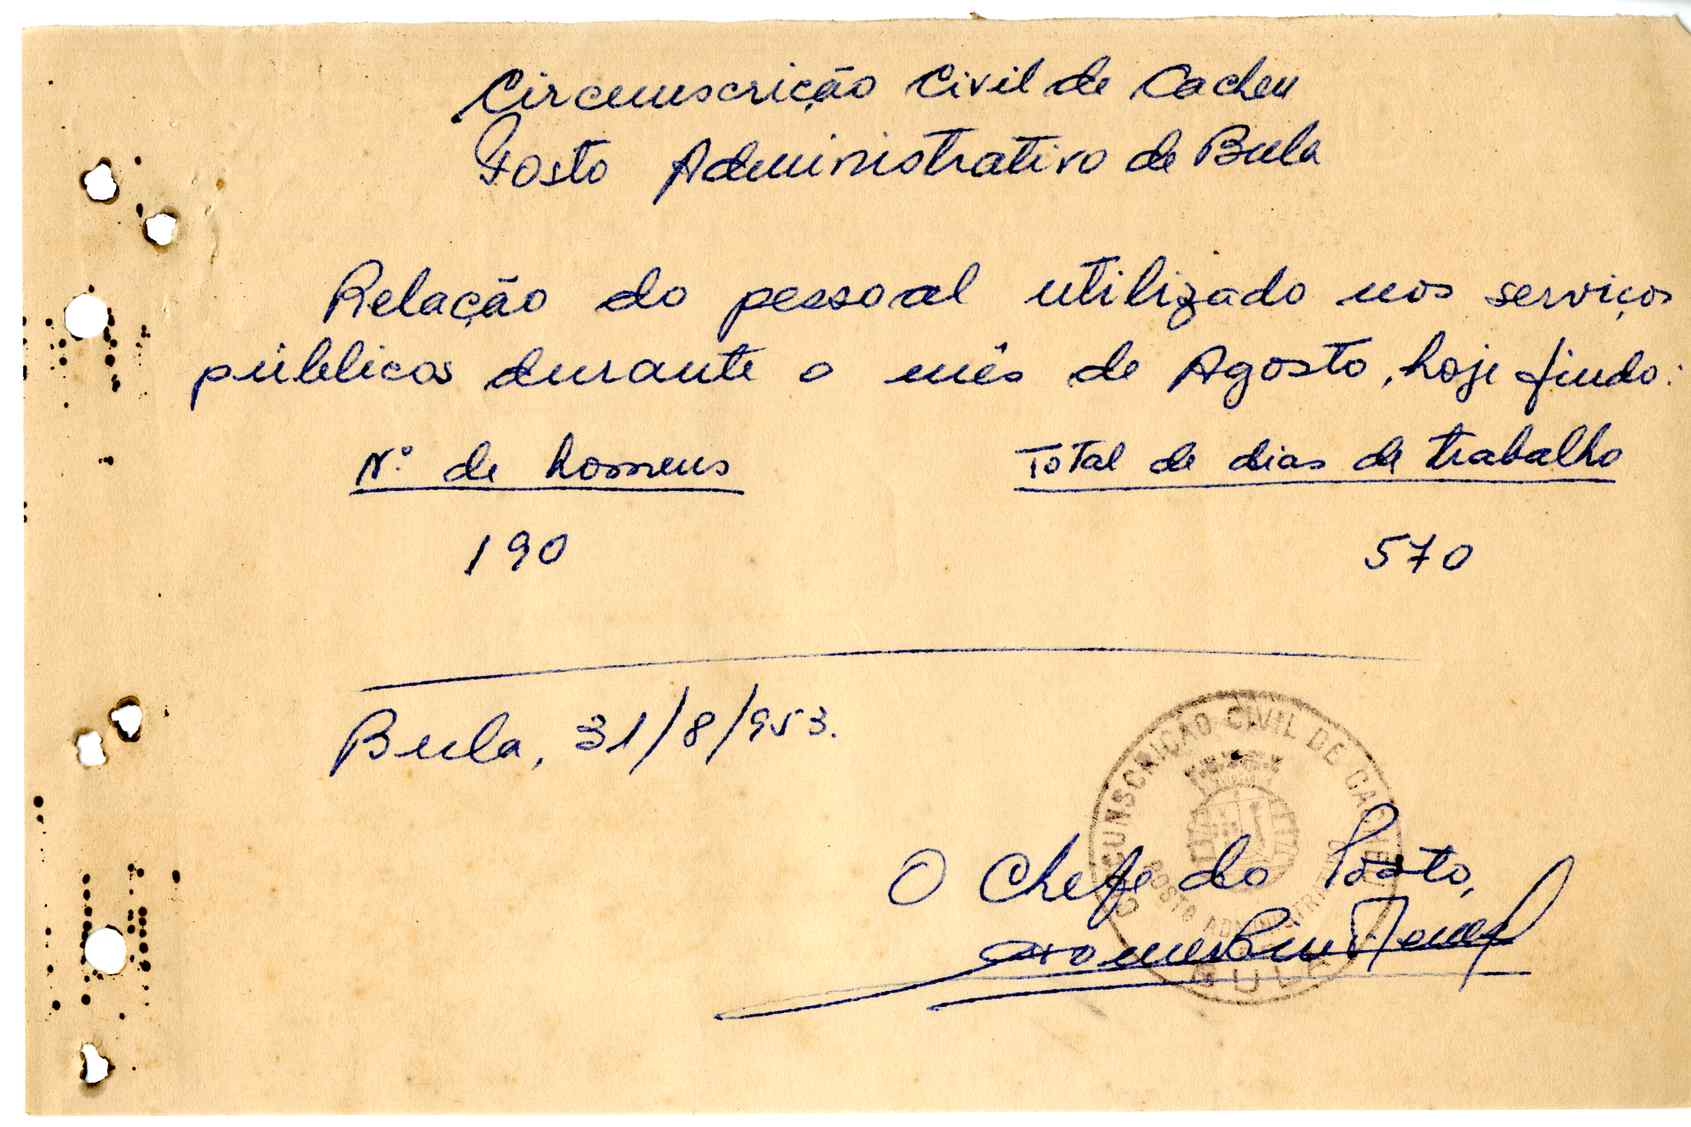 Circunscrição Civil de Cacheu
Posto Administrativo de Bula
Relação do pessoal utilizado nos serviços
públicos durante o mês de Agosto, hoje findo:
Nº de homens Total de dias de trabalho
190 570
Bula, 31/8/953.
CIRCUNSCRIÇÃO CIVIL DE CACHEU
POSTO ADMINISTRATIVO
BULA
O Chefe do Posto,